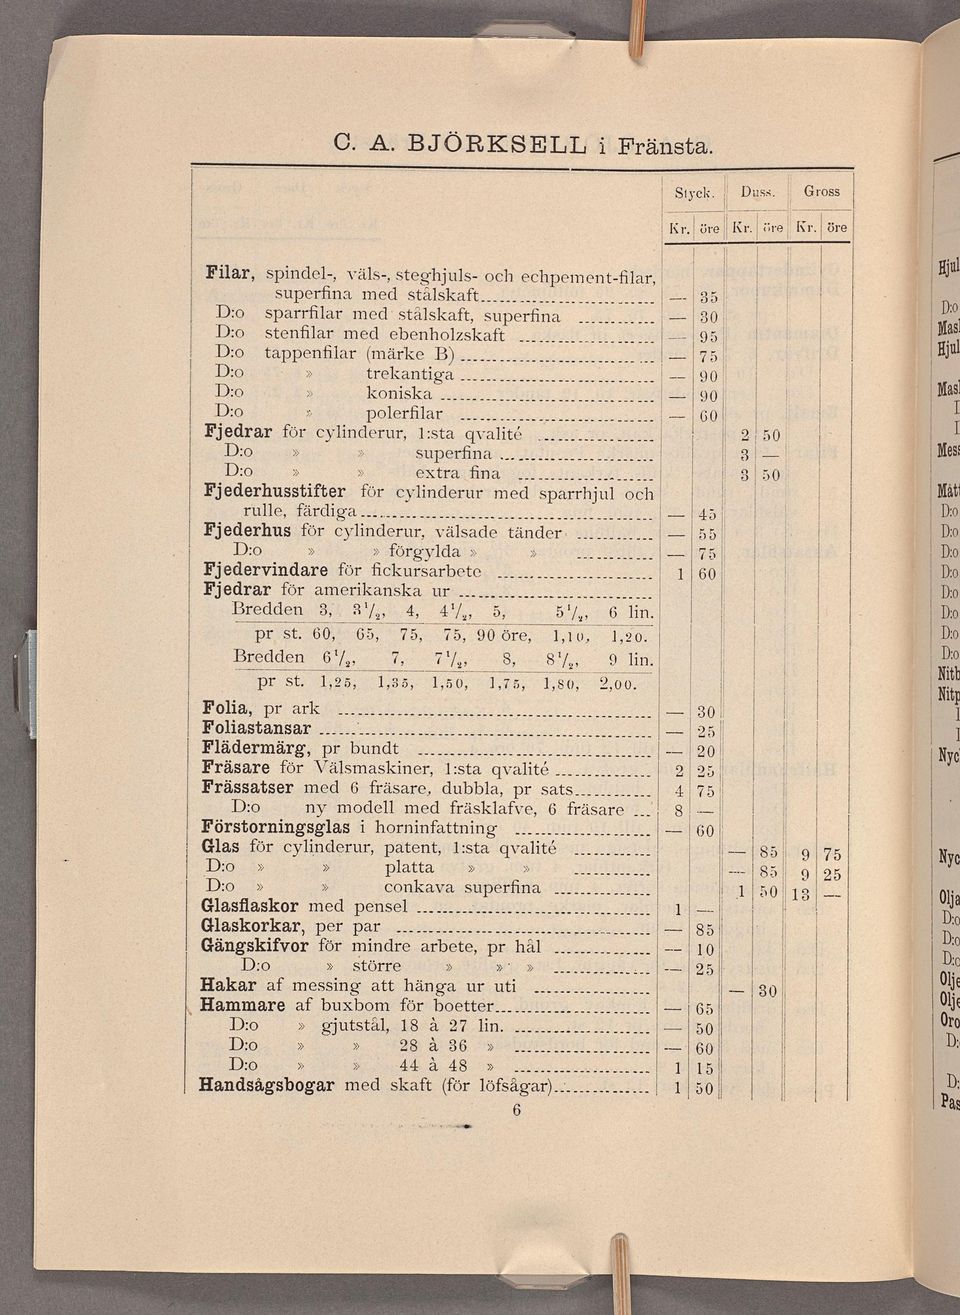 C. A. BJÖRKSELL i Fränsta.
Styck. Duss. Gross
Kr. öre Kr. öre Kr. öre
Filar, spindel-, väls-, steghjuls- och echpement-filar,
superfina med stålskaft — 35
D:o sparrfilar med stålskaft, superfina — 30
D:o stenfilar med ebenholzskaft — 95
D:o tappenfilar (märke B) — 75
D:o » trekantiga — 90
D:o » koniska — 90
D:o » polerfilar — 60
Fjedrar för cylinderur, 1:sta qvalité 2 50
D:o » » superfina 3 —
D:o » » extra fina 3 50
Fjederhusstifter för cylinderur med sparrhjul och
rulle, färdiga — 45
Fjederhus för cylinderur, välsade tänder — 55
D:o » » förgylda » » — 75
Fjedervindare för fickursarbete 1 60
Fjedrar för amerikanska ur
Bredden 3, 3 1/2, 4, 4 1/2, 5, 5 1/2, 6 lin.
pr st. 60, 65, 75, 75, 90 öre, 1,10, 1,20.
Bredden 6 1/2, 7, 7 1/2, 8, 8 1/2, 9 lin.
pr st. 1,25, 1,35, 1,50, 1,75, 1,80, 2,00.
Folia, pr ark — 30
Foliastansar — 25
Flädermärg, pr bundt — 20
Fräsare för Välsmaskiner, 1:sta qvalité 2 25
Frässatser med 6 fräsare, dubbla, pr sats 4 75
D:o ny modell med fräsklafve, 6 fräsare 8 —
Förstorningsglas i horninfattning — 60
Glas för cylinderur, patent, 1:sta qvalité — 85 9 75
D:o » » platta » » — 85 9 25
D:o » » conkava superfina 1 50 13 —
Glasflaskor med pensel 1 —
Glaskorkar, per par — 85
Gängskifvor för mindre arbete, pr hål — 10
D:o » större » » » — 25
Hakar af messing att hänga ur uti — 30
Hammare af buxbom för boetter — 65
D:o » gjutstål, 18 à 27 lin. — 50
D:o » » 28 à 36 » — 60
D:o » » 44 à 48 » 1 15
Handsågsbogar med skaft (för löfsågar) 1 50
6